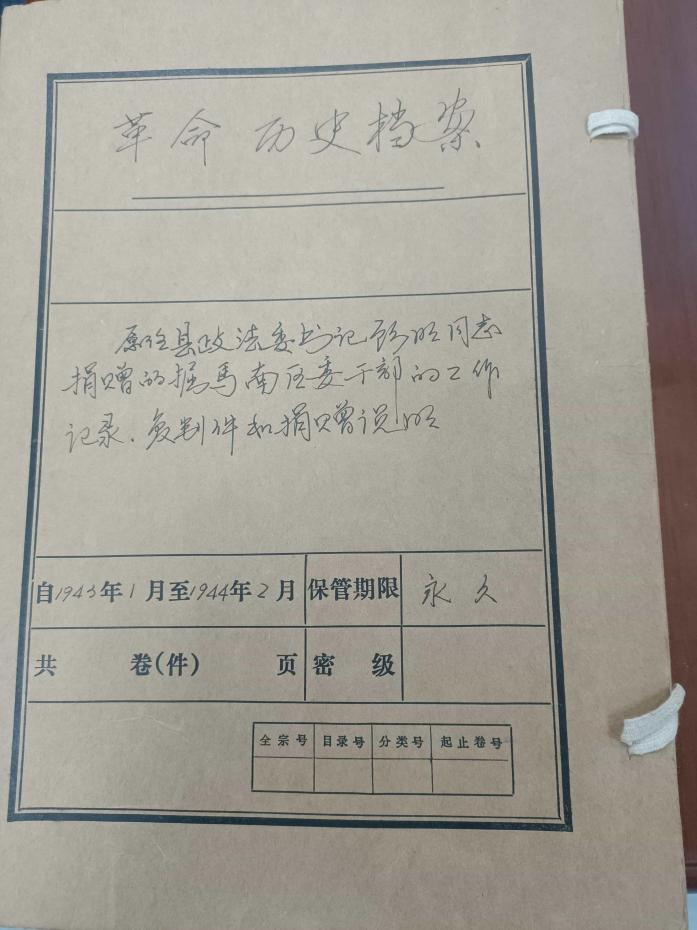 革命历史档案
原任县政法委书记顾明同志
捐赠的掘马南区委干部的工作
记录、复制件和捐赠说明
自1943年1月至1944年2月 保管期限 永久
共 卷(件) 页 密级
全宗号 目录号 分类号 起止卷号